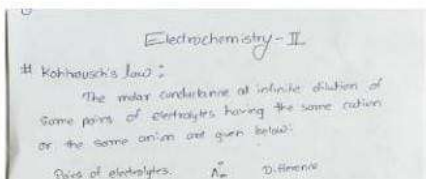 Electrochemistry - II
# Kohhousch's law :
The molar conductance at infinite dilution of
some pairs of electrolytes having the same cation
or the same anion are given below:
Pairs of electrolytes. Λ°m Difference